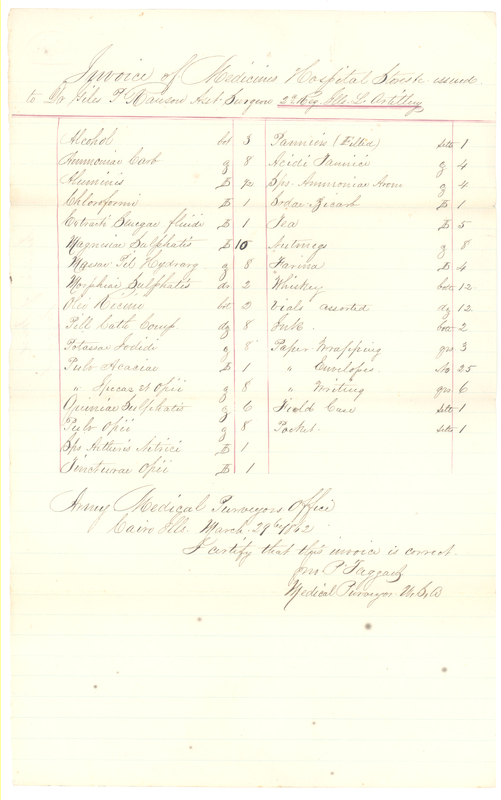 Invoice of Medicines Hospital Stores &c issued
to Dr Giles P Ransom Asst Surgeon 2d Reg Ills L. Artillery
Alcohol bot 3
Ammoniae Carb ℥ 8
Aluminis ℔ ½
Chloroformi ℔ 1
Extracti Senegae fluidi ℔ 1
Magnesiae Sulphatis ℔ 10
Massae Pil Hydrarg ℥ 8
Morphiae Sulphatis dr 2
Olei Ricini bot 2
Pill Cath Comp dz 8
Potassae Iodidi ℥ 8
Pulv Acaciae ℔ 1
" Ipecac et Opii ℥ 8
Quiniae Sulphatis ℥ 6
Pulv Opii ℥ 8
Sps Aetheris Nitrici ℔ 1
Tincturae Opii ℔ 1
Panniers (Filled) setts 1
Acidi Tannici ℥ 4
Sps. Ammoniae Arom ℥ 4
Sodae Bicarb ℔ 1
Tea ℔ 5
Nutmegs ℥ 8
Farina ℔ 4
Whiskey bot 12
Vials assorted dz 12
Ink bot 2
Paper Wrapping qrs 3
" Envelopes No 25
" Writing qrs 6
Field Case setts 1
Pocket setts 1
Army Medical Purveyors Office
Cairo Ills. March 29th 1862
I certify that this invoice is correct.
Jno. P Taggart
Medical Purveyor U.S.A